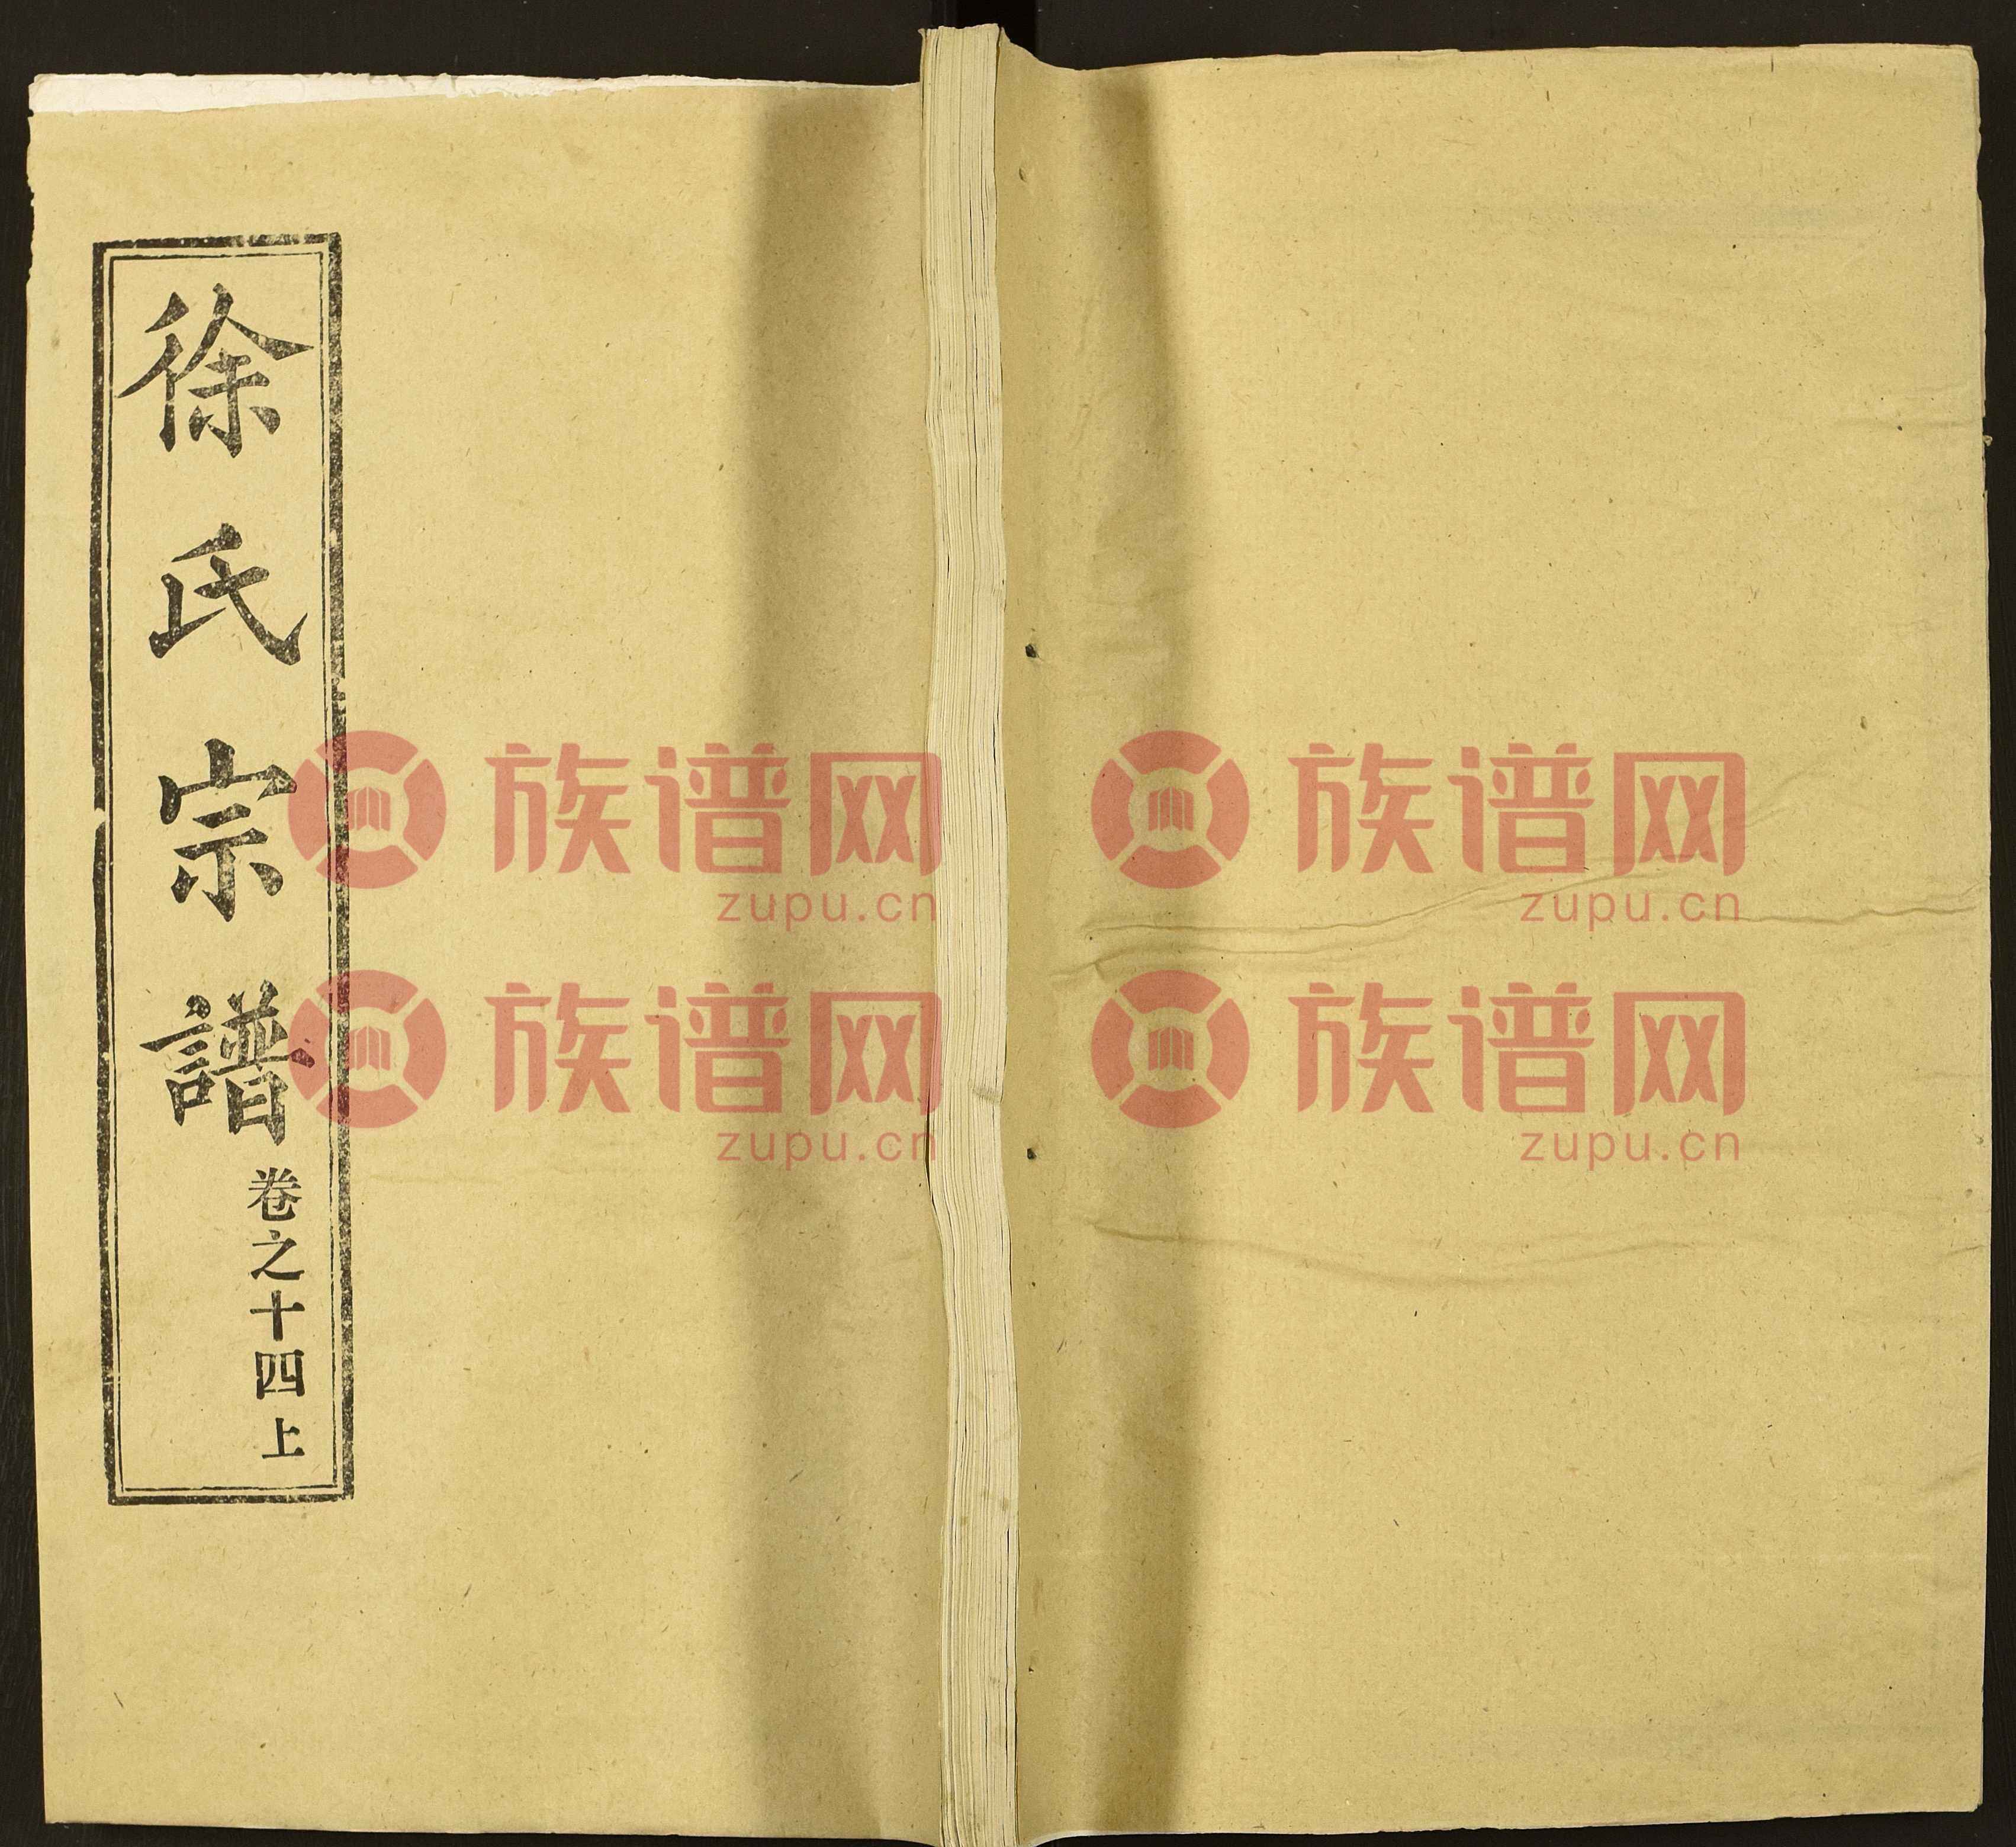 徐氏宗譜
卷之十四上
族谱网
zupu.cn
族谱网
zupu.cn
族谱网
zupu.cn
族谱网
zupu.cn